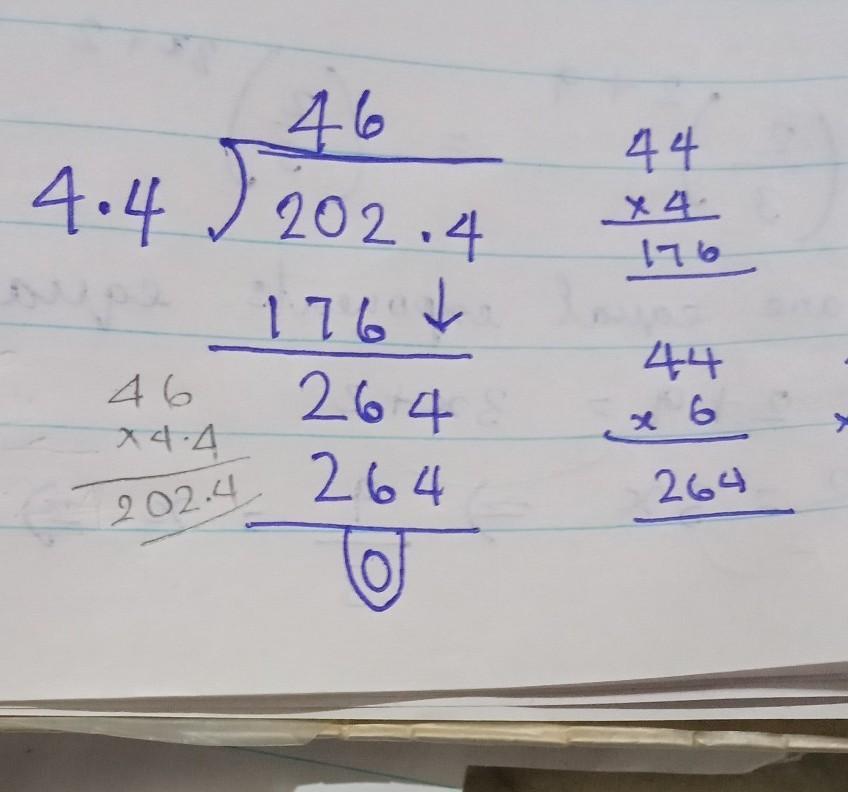 46
4.4 ) 202.4
176 ↓
264
264
0
44
x 4
176
44
x 6
264
46
x 4.4
202.4